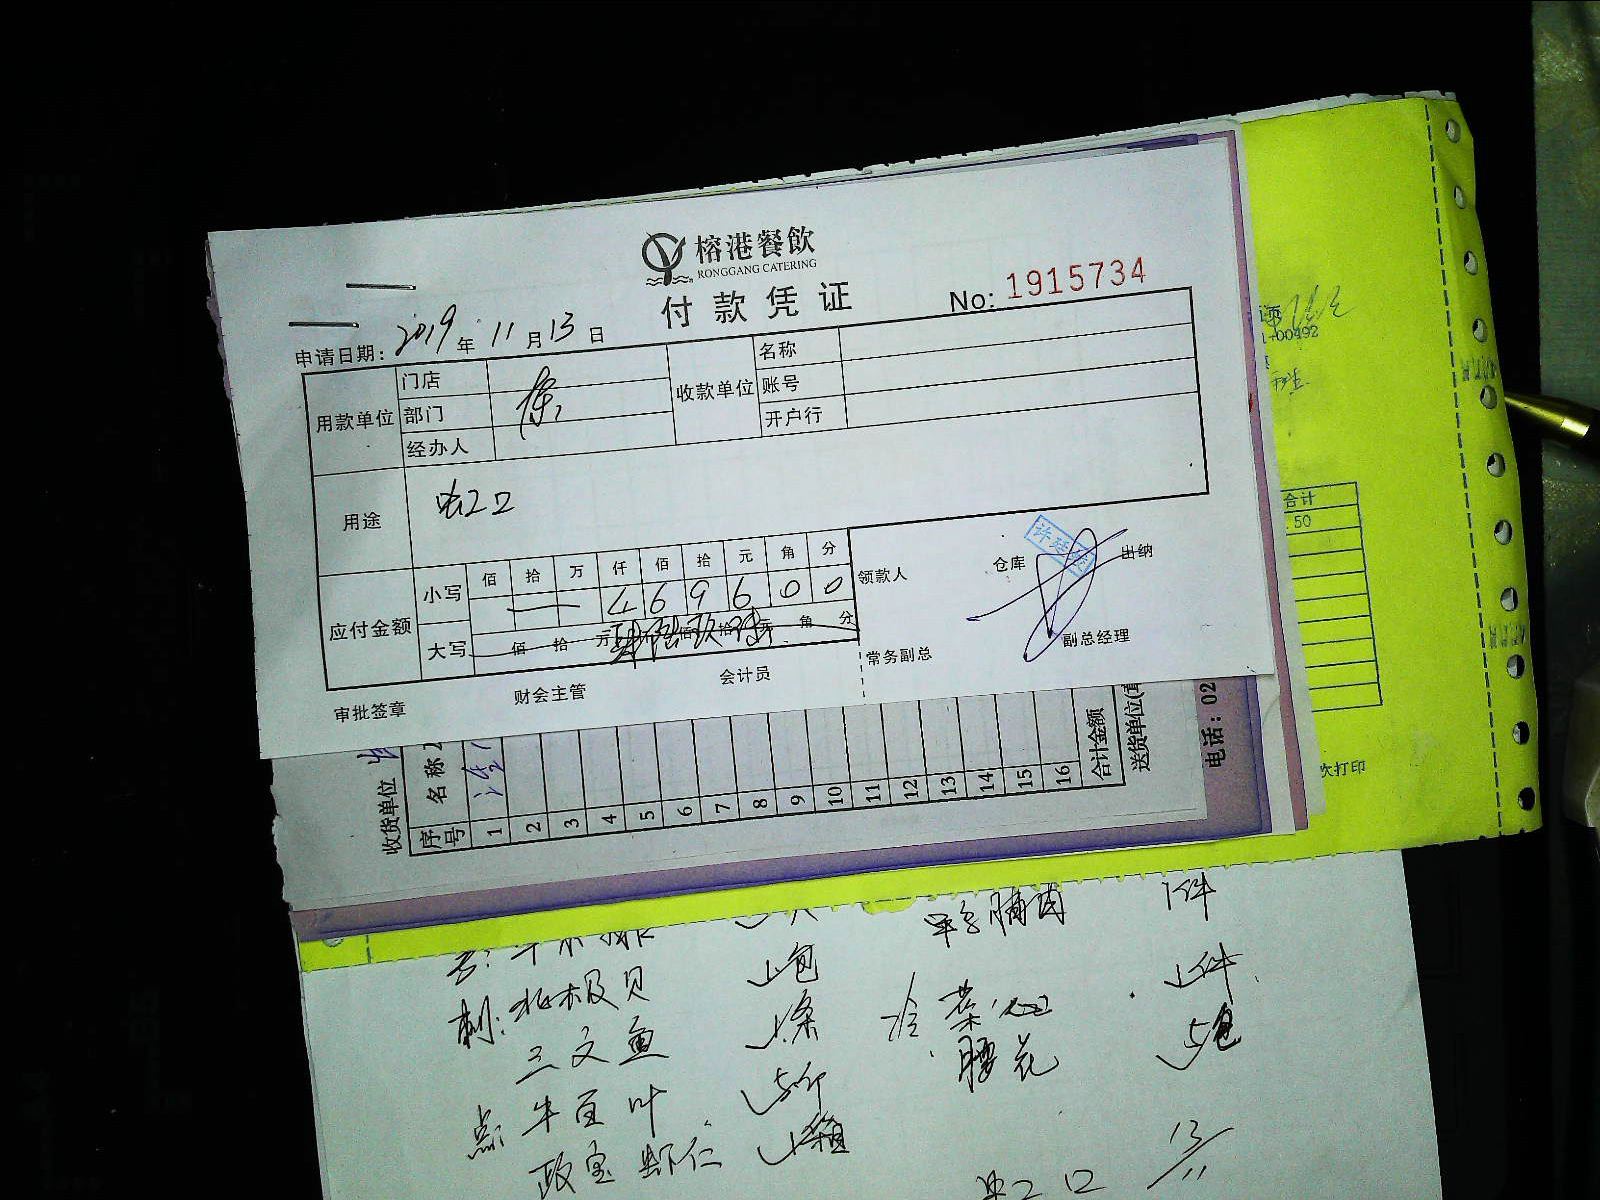 榕港餐飲
RONGGANG CATERING
付款凭证
No: 1915734
申请日期: 2019年11月13日
用款单位
门店
部门
经办人
收款单位
名称
账号
开户行
用途
应付金额
小写
佰 拾 万 仟 佰 拾 元 角 分
4 6 9 6 0 0
大写
佰 拾 万 肆 仟 陆 佰 玖 拾 陆 元 角 分
领款人
仓库
出纳
常务副总
副总经理
审批签章
财会主管
会计员
1+00492
合计
.50
次打印
收货单位
序号
名称
1
2
3
4
5
6
7
8
9
10
11
12
13
14
15
16
合计金额
送货单位
电话：02
脯肉 1件
刺: 北极贝 1包
冷 菜心 1件
三文鱼 1条
腰花 5包
点: 牛百叶 5斤
虾仁 1箱
13/11